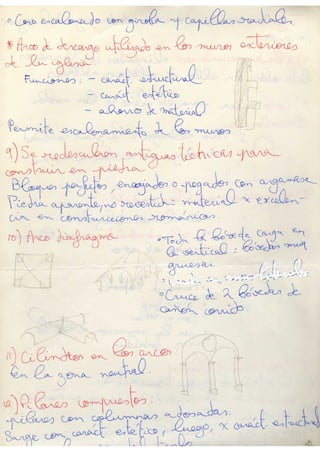 • Coro escalonado con girola y capillas radiales.
* Arco de descargo utilizado en los muros exteriores
de la iglesia.
Funciones: - caráct. estructural
- caráct. estético
- ahorro de material
Permite escalonamiento de los muros.
9) Se redescubren antiguas técnicas para
construir en piedra
Bloques perfectos, encajados o pegados con argamasa
Piedra aparente, no revestida = material x excelen-
cia en construcciones románicas.
10) Arco diafragma
• Toda la bóveda carga en
la vertical = bóvedas muy
gruesas.
• Cruce de 2 bóvedas de
cañón corrido.
11) Cilindros en los arcos
en la zona neutral.
12) Pilares compuestos:
pilares con columnas adosadas.
Surge con caráct. estético, luego, x caráct. estructural